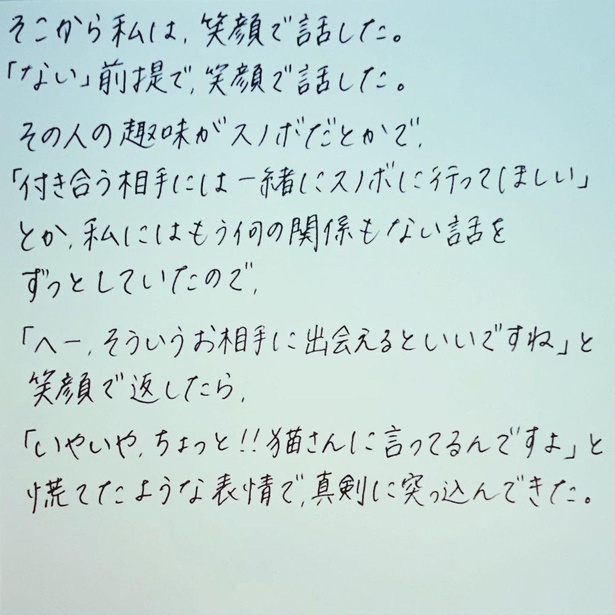 そこから私は、笑顔で話した。
「ない」前提で、笑顔で話した。
その人の趣味がスノボだとかで、
「付き合う相手には一緒にスノボに行ってほしい」
とか、私にはもう何の関係もない話を
ずっとしていたので、
「へー、そういうお相手に出会えるといいですね」と
笑顔で返したら、
「いやいや、ちょっと!!猫さんに言ってるんですよ」と
慌てたような表情で、真剣に突っ込んできた。